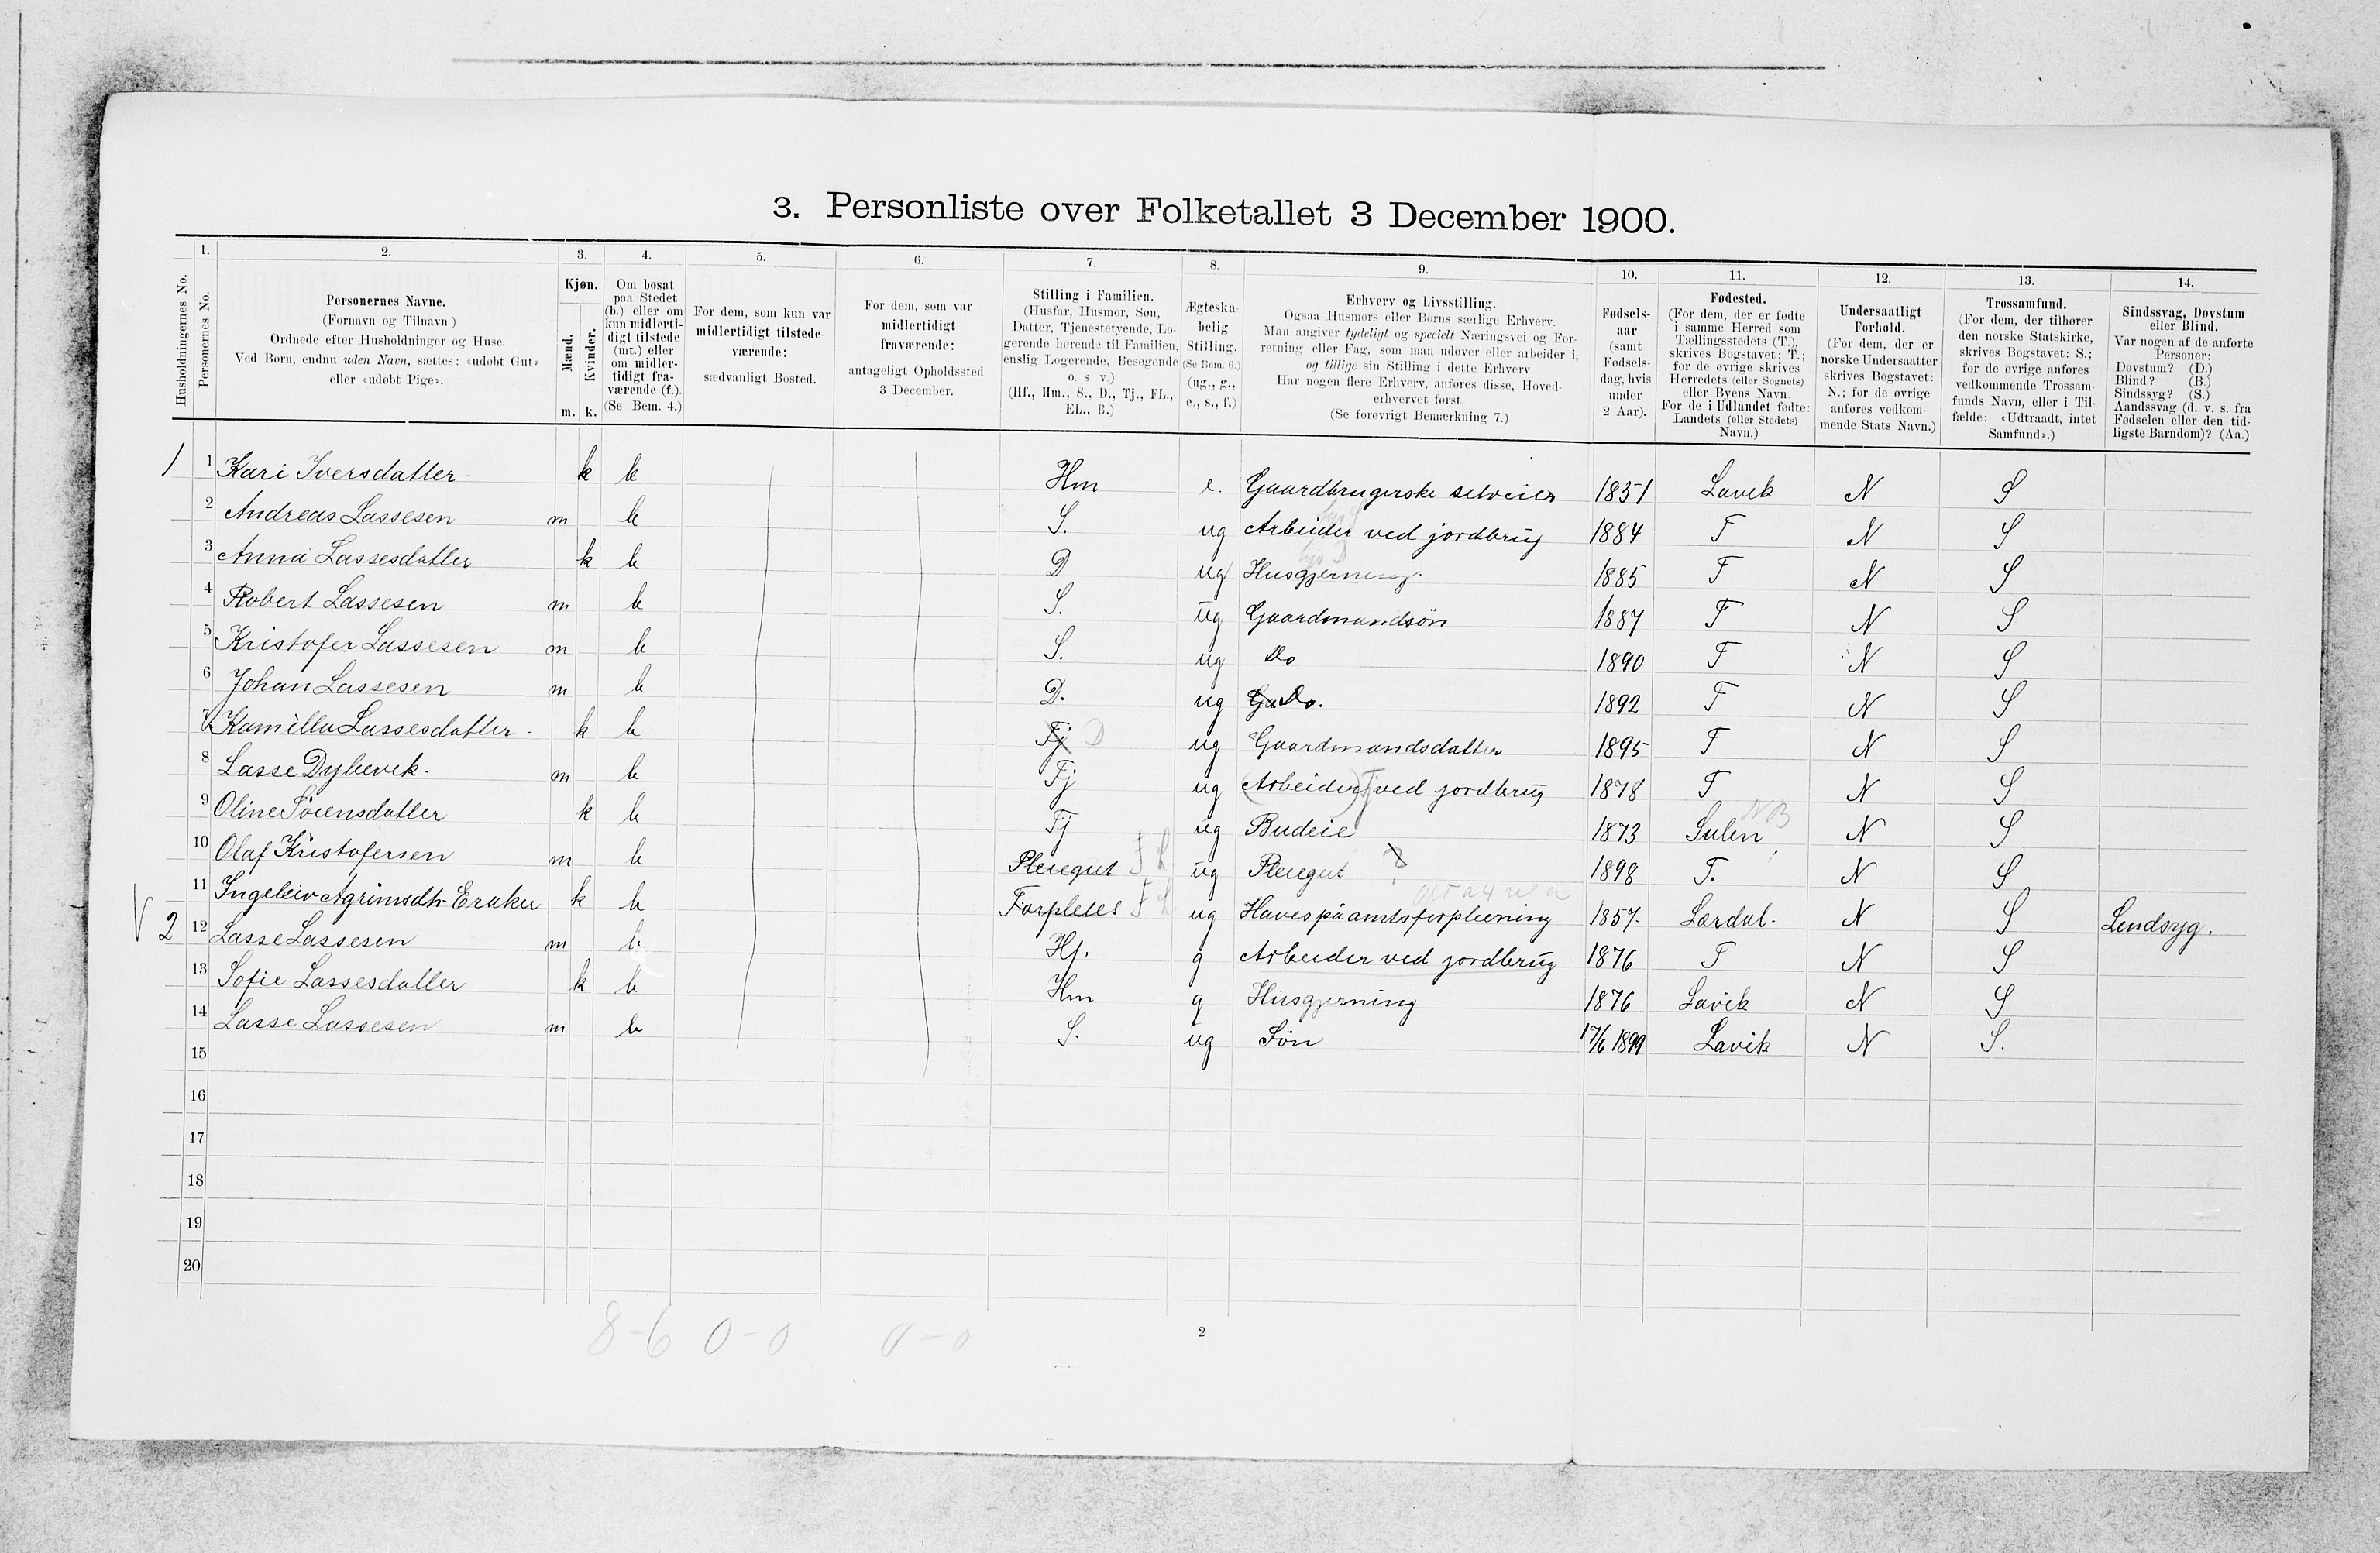 3. Personliste over Folketallet 3 December 1900.
1. 2. 3. 4. 5. 6. 7. 8. 9. 10. 11. 12. 13. 14.
Husholdningernes No.
Personernes No.
Personernes Navne.
(Fornavn og Tilnavn)
Ordnede efter Husholdninger og Huse.
Ved Børn, endnu uden Navn, sættes: «udøbt Gut»
eller «udøbt Pige».
Kjøn.
Mænd.
Kvinder.
m. k.
Om bosat
paa Stedet
(b.) eller om
kun midlerti-
digt tilstede
(mt.) eller
om midler-
tidigt fra-
værende (f.).
(Se Bem. 4.)
For dem, som kun var
midlertidigt tilstede-
værende:
sædvanligt Bosted.
For dem, som var
midlertidigt
fraværende:
antageligt Opholdssted
3 December.
Stilling i Familien.
(Husfar, Husmor, Søn,
Datter, Tjenestetyende, Lo-
gerende hørende til Familien,
enslig Logerende, Besøgende
o. s v.)
(Hf., Hm., S., D., Tj., FL.,
EL., B.)
Ægteska-
belig
Stilling.
(Se Bem. 6.)
(ug., g.,
e., s., f.)
Erhverv og Livsstilling.
Ogsaa Husmors eller Børns særlige Erhverv.
Man angiver tydeligt og specielt Næringsvei og For-
retning eller Fag, som man udøver eller arbeider i,
og tillige sin Stilling i dette Erhverv.
Har nogen flere Erhverv, anføres disse, Hoved-
erhvervet først.
(Se forøvrigt Bemærkning 7.)
Fødsels-
aar
(samt
Fødsels-
dag, hvis
under
2 Aar).
Fødested.
(For dem, der er fødte
i samme Herred som
Tællingsstedets (T.),
skrives Bogstavet: T.;
for de øvrige skrives
Herredets (eller Sognets)
eller Byens Navn.
For de i Udlandet fødte:
Landets (eller Stedets)
Navn.)
Undersaatligt
Forhold.
(For dem, der er
norske Undersaatter
skrives Bogstavet:
N.; for de øvrige
anføres vedkom-
mende Stats Navn.)
Trossamfund.
(For dem, der tilhører
den norske Statskirke,
skrives Bogstavet: S.;
for de øvrige anføres
vedkommende Trossam-
funds Navn, eller i Til-
fælde: «Udtraadt, intet
Samfund».)
Sindssvag, Døvstum
eller Blind.
Var nogen af de anførte
Personer:
Døvstum? (D.)
Blind? (B.)
Sindssyg? (S.)
Aandssvag (d. v. s. fra
Fødselen eller den tid-
ligste Barndom)? (Aa.)
1 1 Kari Iversdatter k b Hm e. Gaardbrugerske selveier 1851 Lavik N S
2 Andreas Lassesen m b S. ug Arbeider ved jordbrug 1884 T N S
3 Anna Lassesdatter k b D ug Husgjerning 1885 T N S
4 Robert Lassesen m b S. ug Gaardmandsön 1887 T N S
5 Kristofer Lassesen m b S. ug Do 1890 T N S
6 Johan Lassesen m b D. ug Do. 1892 T N S
7 Kamilla Lassesdatter k b Tj D ug Gaardmandsdatter 1895 T N S
8 Lasse Dybevik. m b Tj ug (Arbeider) Tj ved jordbrug 1878 T N S
9 Oline Sörensdatter k b Tj ug Budeie 1873 Sulen NB N S
10 Olaf Kristofersen m b Pleiegut ug Pleiegut 1898 T. N S
11 Ingeleiv Agrimsdtr Eraker k b Forpleies ug Haves på amtsforpleining 1857. Lærdal. N S Sindsyg.
V 2 12 Lasse Lassesen m b Hf. g Arbeider ved jordbrug 1876 T N S
13 Sofie Lassesdatter k b Hm g Husgjerning 1876 Lavik N S
14 Lasse Lassesen m b S. ug Sön 17/6 1899 Lavik N S.
15
16
17
18
19
20
8-6 0-0 0-0
2